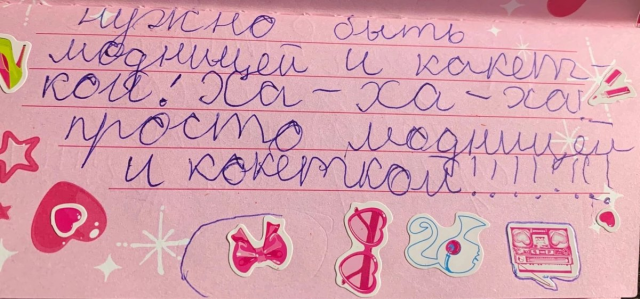 нужно быть
модницей и какет-
кой! Ха-ха-ха!
просто модницей
и кокеткой!!!!!!!